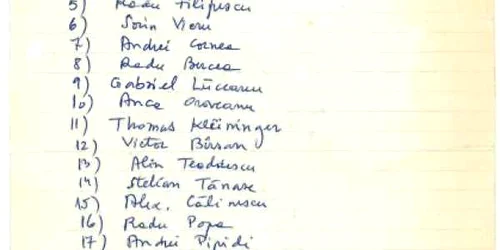 5) Radu Filipescu
6) Sorin Vieru
7) Andrei Cornea
8) Radu Bercea
9) Gabriel Liiceanu
10) Anca Oroveanu
11) Thomas Kleininger
12) Victor Bârsan
13) Alin Teodorescu
14) Stelian Tănase
15) Alex. Călinescu
16) Radu Popa
17) Andrei Pipidi